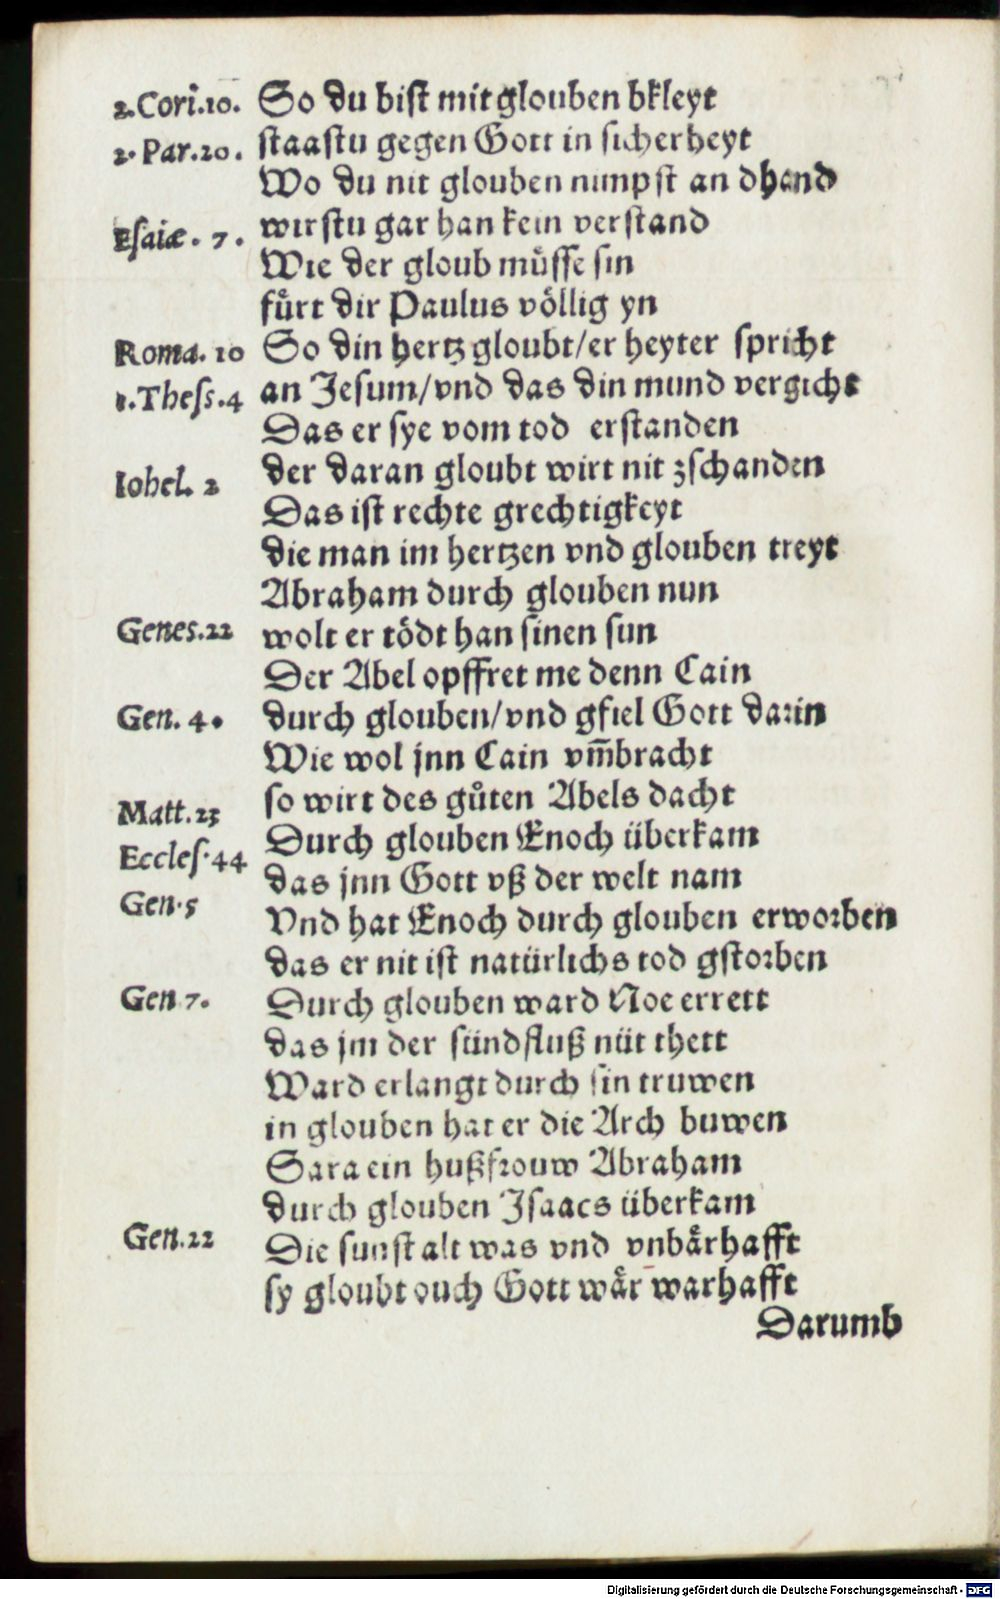 2.Cori.10. So du bist mit glouben bkleyt
2. Par.20. staastu gegen Gott in sicherheyt
Wo du nit glouben nimpst an dhand
Esaiæ. 7. wirstu gar han kein verstand
Wie der gloub mu̇sse sin
fu̇rt dir Paulus völlig yn
Roma. 10 So din hertz gloubt/er heyter spricht
1.Thess.4 an Jesum/vnd das din mund vergicht
Das er sye vom tod erstanden
Iohel. 2 der daran gloubt wirt nit zschanden
Das ist rechte grechtigkeyt
die man im hertzen vnd glouben treyt
Abraham durch glouben nun
Genes.22 wolt er tödt han sinen sun
Der Abel opffret me denn Cain
Gen. 4. durch glouben/vnd gfiel Gott darin
Wie wol jnn Cain vm̃bracht
Matt.23 so wirt des gůten Abels dacht
Eccles.44 Durch glouben Enoch überkam
das jnn Gott vß der welt nam
Gen.5 Vnd hat Enoch durch glouben erworben
das er nit ist natürlichs tod gstorben
Gen 7. Durch glouben ward Noe errett
das jm der sündfluß nüt thett
Ward erlangt durch sin truwen
in glouben hat er die Arch buwen
Sara ein hußfrouw Abraham
durch glouben Isaacs überkam
Gen.22 Die sunst alt was vnd vnbärhafft
sy gloubt ouch Gott wär warhafft
Darumb
Digitalisierung gefördert durch die Deutsche Forschungsgemeinschaft - DFG